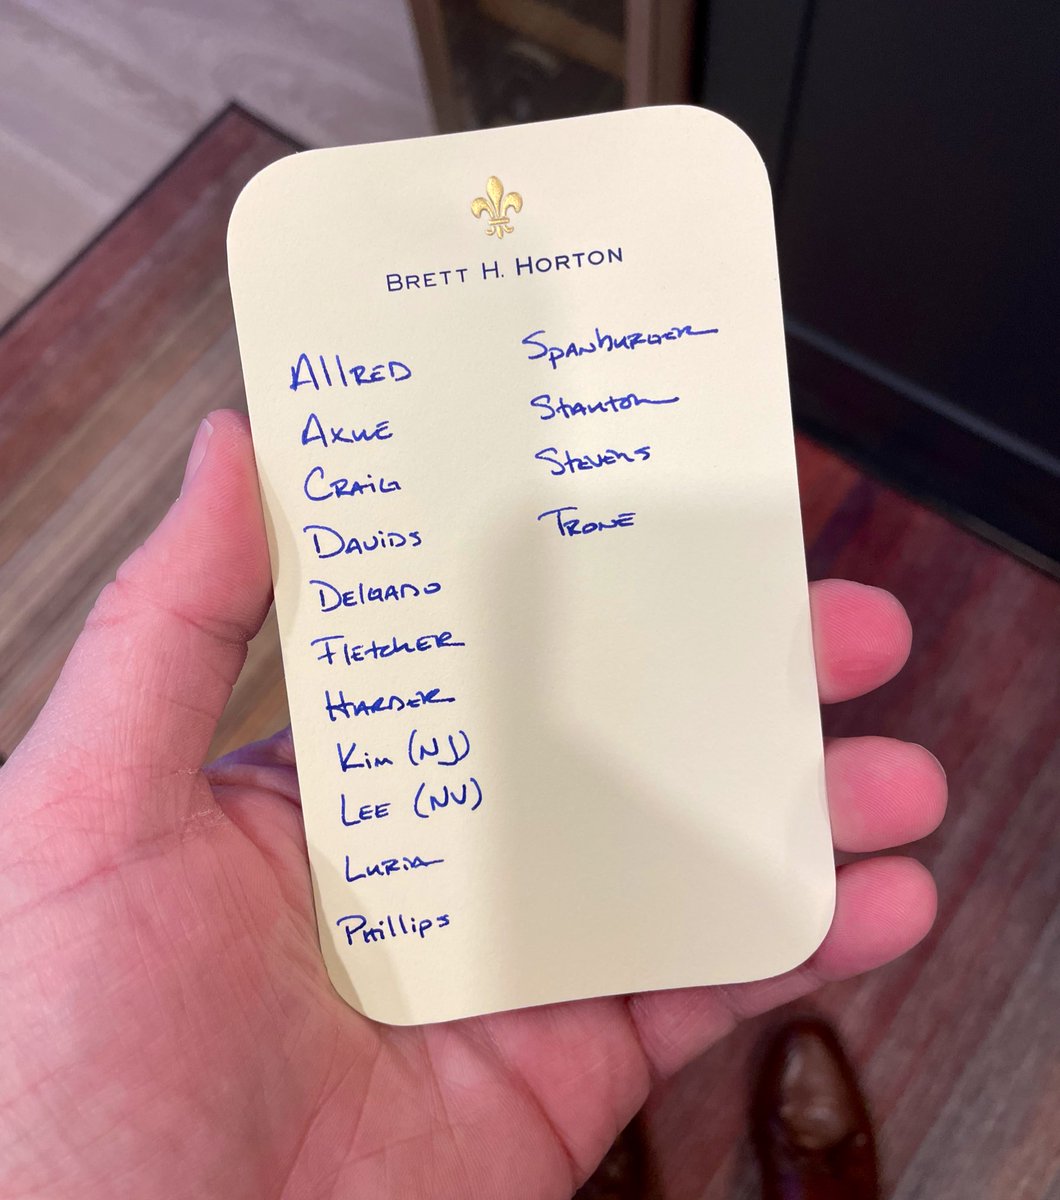 BRETT H. HORTON
Allred
Axne
Craig
Davids
Delgado
Fletcher
Harder
Kim (NJ)
Lee (NV)
Luria
Phillips
Spanburger
Stanton
Stevens
Trone